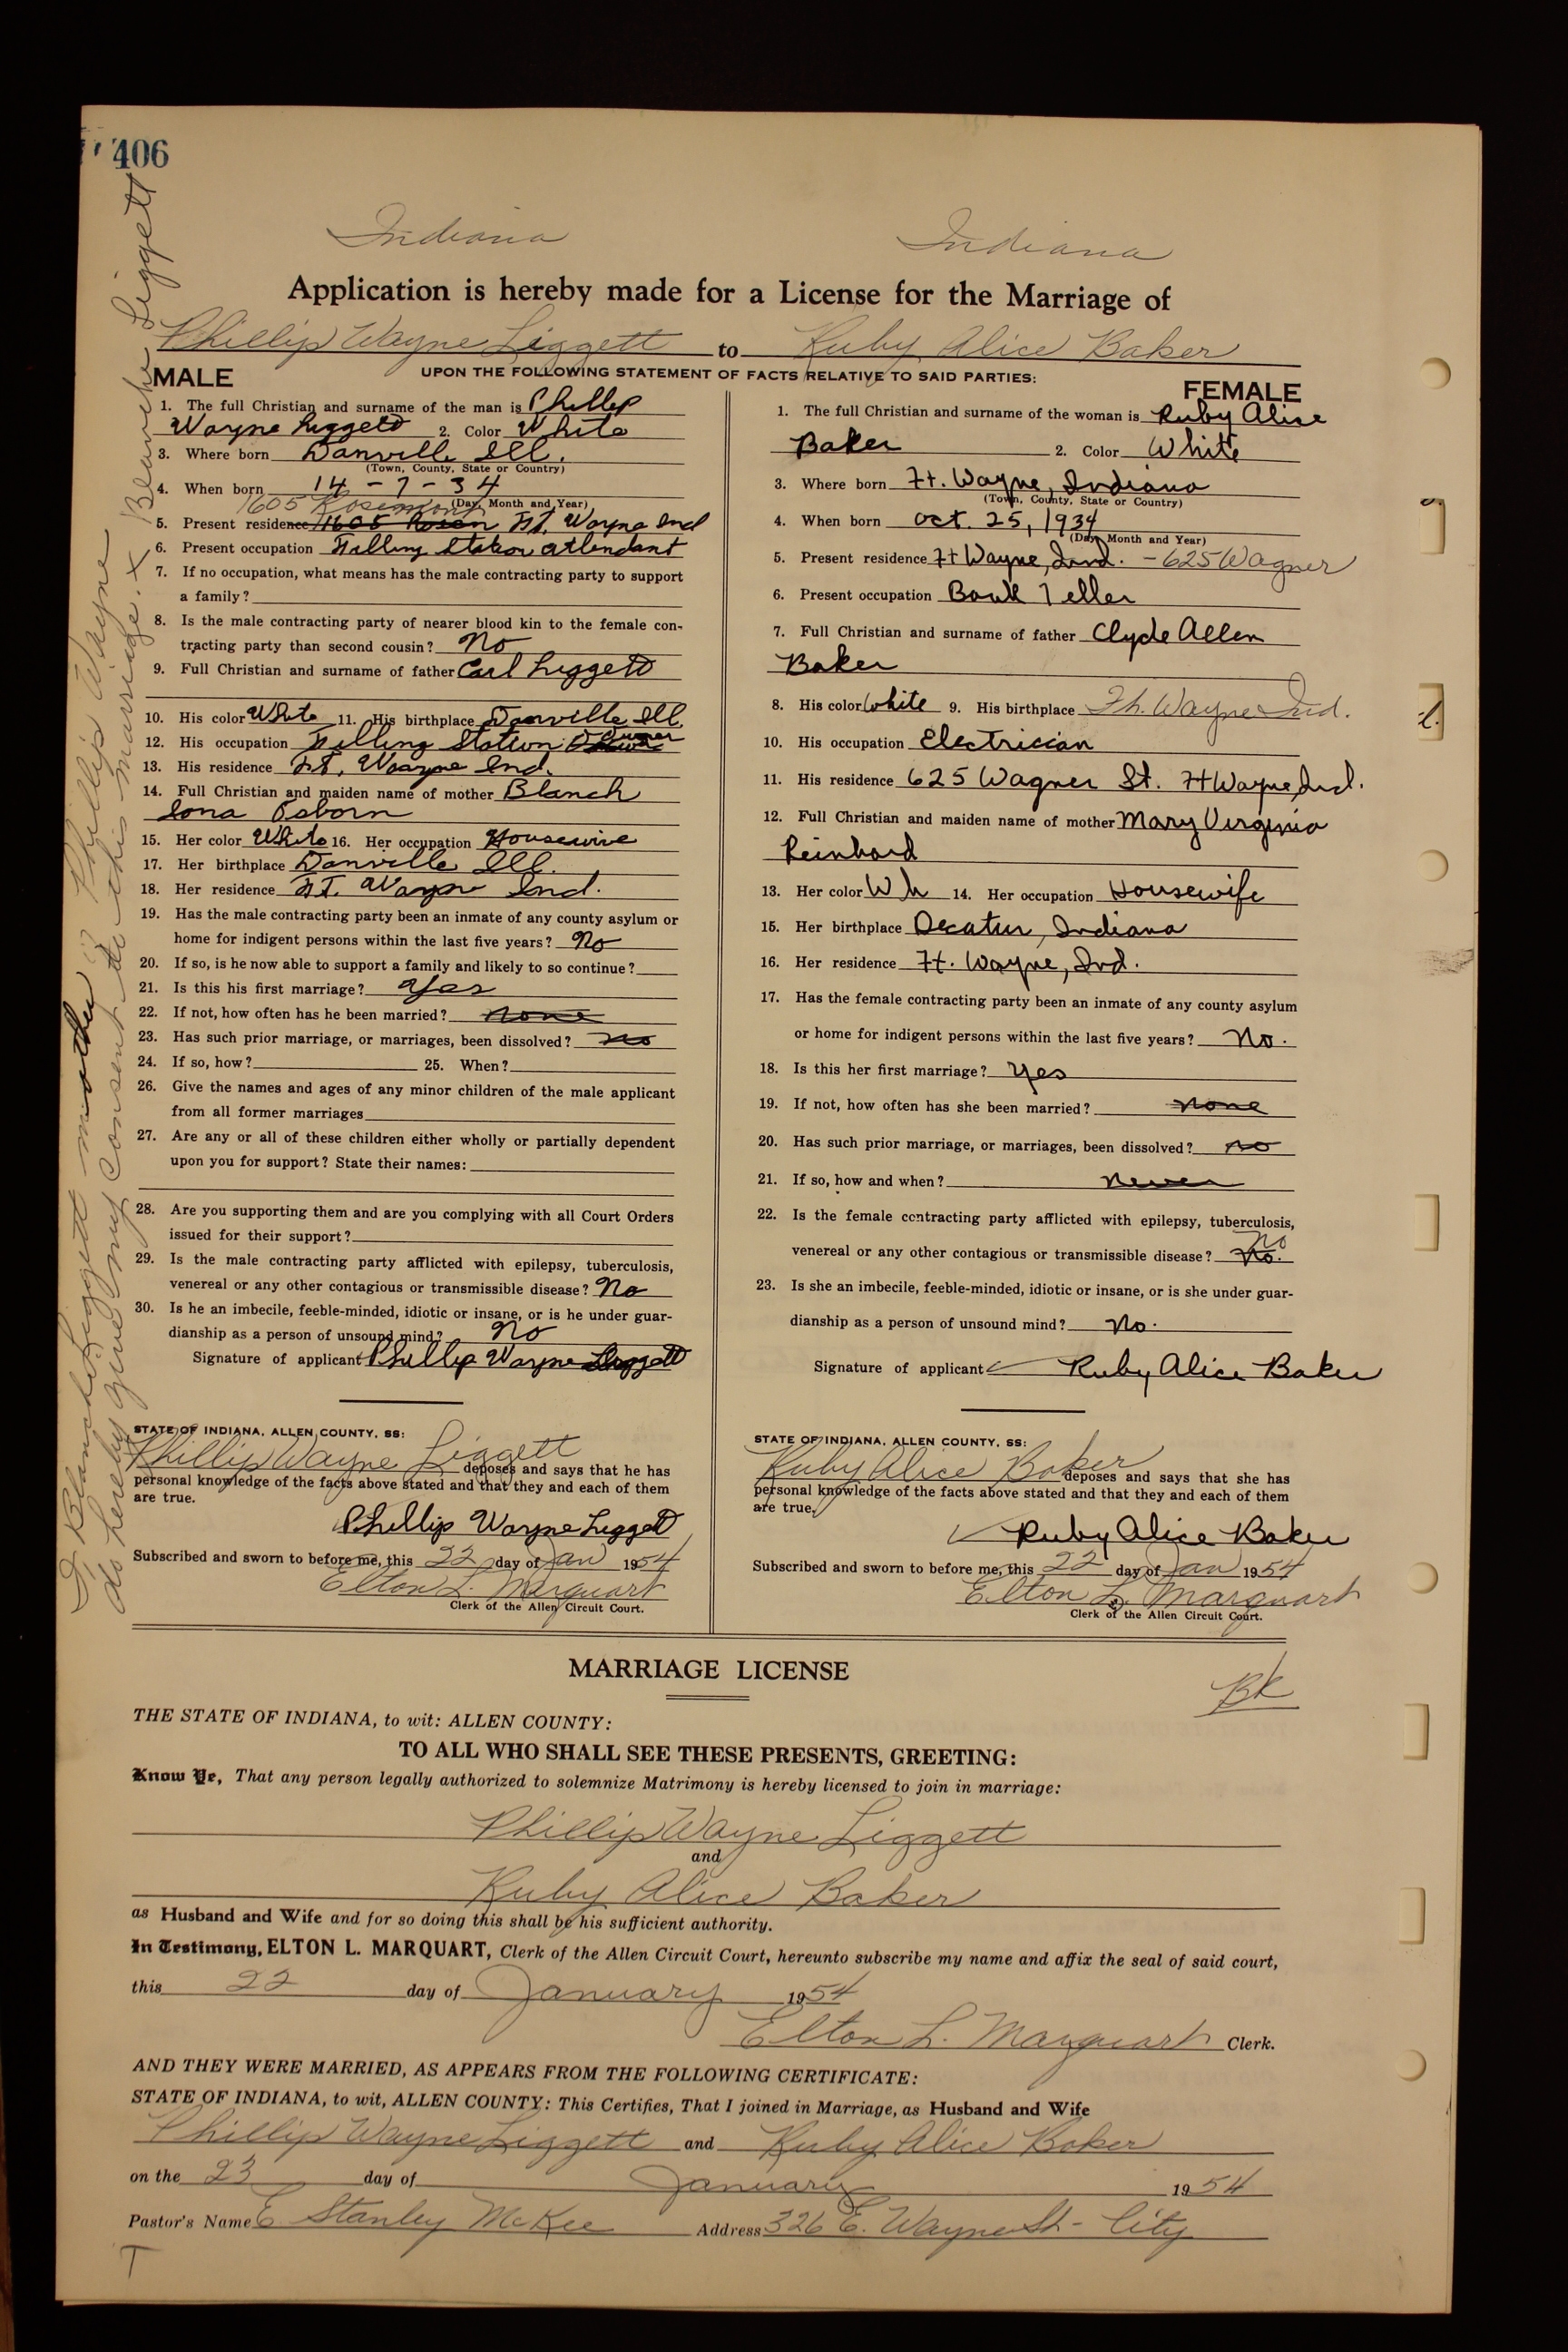 406
Indiana Indiana
Application is hereby made for a License for the Marriage of
Phillip Wayne Liggett to Ruby Alice Baker
UPON THE FOLLOWING STATEMENT OF FACTS RELATIVE TO SAID PARTIES:
MALE
1. The full Christian and surname of the man is Phillip
Wayne Liggett 2. Color White
3. Where born Danville Ill.
(Town, County, State or Country)
4. When born 14 - 7 - 34
(Day, Month and Year)
1605 Rosemont
5. Present residence 1605 Rosen Ft. Wayne Ind
6. Present occupation Filling Station attendant
7. If no occupation, what means has the male contracting party to support
a family?
8. Is the male contracting party of nearer blood kin to the female con-
tracting party than second cousin? No
9. Full Christian and surname of father Carl Liggett
10. His color White 11. His birthplace Danville Ill.
12. His occupation Filling Station Owner
13. His residence Ft. Wayne Ind.
14. Full Christian and maiden name of mother Blanch
Iona Osborn
15. Her color White 16. Her occupation Housewive
17. Her birthplace Danville Ill.
18. Her residence Ft. Wayne Ind.
19. Has the male contracting party been an inmate of any county asylum or
home for indigent persons within the last five years? No
20. If so, is he now able to support a family and likely to so continue?
21. Is this his first marriage? Yes
22. If not, how often has he been married? none
23. Has such prior marriage, or marriages, been dissolved? no
24. If so, how? 25. When?
26. Give the names and ages of any minor children of the male applicant
from all former marriages
27. Are any or all of these children either wholly or partially dependent
upon you for support? State their names:
28. Are you supporting them and are you complying with all Court Orders
issued for their support?
29. Is the male contracting party afflicted with epilepsy, tuberculosis,
venereal or any other contagious or transmissible disease? No
30. Is he an imbecile, feeble-minded, idiotic or insane, or is he under guar-
dianship as a person of unsound mind? No
Signature of applicant Phillip Wayne Liggett
STATE OF INDIANA, ALLEN COUNTY, SS:
Phillip Wayne Liggett deposes and says that he has
personal knowledge of the facts above stated and that they and each of them
are true.
Phillip Wayne Liggett
Subscribed and sworn to before me, this 22 day of Jan 1954
Elton L. Marquart
Clerk of the Allen Circuit Court.
I, Blanche Liggett mother of Phillip Wayne
do hereby give my consent to this marriage. x Blanche Liggett
FEMALE
1. The full Christian and surname of the woman is Ruby Alice
Baker 2. Color White
3. Where born Ft. Wayne, Indiana
(Town, County, State or Country)
4. When born Oct. 25, 1934
(Day, Month and Year)
5. Present residence Ft Wayne, Ind. - 625 Wagner
6. Present occupation Bank Teller
7. Full Christian and surname of father Clyde Allen
Baker
8. His color White 9. His birthplace Ft. Wayne Ind.
10. His occupation Electrician
11. His residence 625 Wagner St. Ft Wayne, Ind.
12. Full Christian and maiden name of mother Mary Virginia
Reinhard
13. Her color Wh 14. Her occupation Housewife
15. Her birthplace Decatur, Indiana
16. Her residence Ft. Wayne, Ind.
17. Has the female contracting party been an inmate of any county asylum
or home for indigent persons within the last five years? No.
18. Is this her first marriage? Yes
19. If not, how often has she been married? none
20. Has such prior marriage, or marriages, been dissolved? no
21. If so, how and when? never
22. Is the female contracting party afflicted with epilepsy, tuberculosis,
No
venereal or any other contagious or transmissible disease? No.
23. Is she an imbecile, feeble-minded, idiotic or insane, or is she under guar-
dianship as a person of unsound mind? No.
Signature of applicant Ruby Alice Baker
STATE OF INDIANA, ALLEN COUNTY, SS:
Ruby Alice Baker deposes and says that she has
personal knowledge of the facts above stated and that they and each of them
are true.
Ruby Alice Baker
Subscribed and sworn to before me, this 22 day of Jan 1954
Elton L. Marquart
Clerk of the Allen Circuit Court.
MARRIAGE LICENSE
BK
THE STATE OF INDIANA, to wit: ALLEN COUNTY:
TO ALL WHO SHALL SEE THESE PRESENTS, GREETING:
Know Ye, That any person legally authorized to solemnize Matrimony is hereby licensed to join in marriage:
Phillip Wayne Liggett
and
Ruby Alice Baker
as Husband and Wife and for so doing this shall be his sufficient authority.
In Testimony, ELTON L. MARQUART, Clerk of the Allen Circuit Court, hereunto subscribe my name and affix the seal of said court,
this 22 day of January 1954
Elton L. Marquart Clerk.
AND THEY WERE MARRIED, AS APPEARS FROM THE FOLLOWING CERTIFICATE:
STATE OF INDIANA, to wit, ALLEN COUNTY: This Certifies, That I joined in Marriage, as Husband and Wife
Phillip Wayne Liggett and Ruby Alice Baker
on the 23 day of January 1954
Pastor's Name E Stanley McKee Address 326 E. Wayne St- City
T